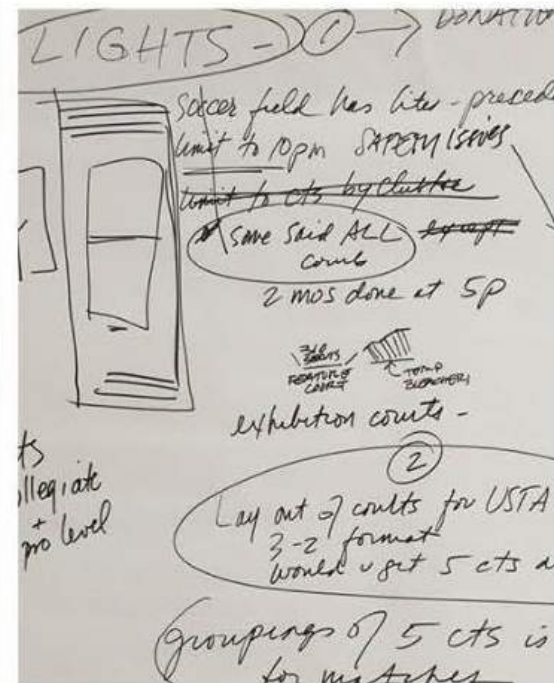 LIGHTS - ① → DONATION
soccer field has lites - preced
limit to 10pm SAFETY ISSUES
limit to cts by cluster
some said ALL except
courts
2 mos done at 5p
SEATS
FEATURE COURT
TEMP BLEACHERS
exhibition courts -
ts
llegiate
+
pro level
②
Lay out of courts for USTA
3-2 format
would u get 5 cts a
groupings of 5 cts is
for matches